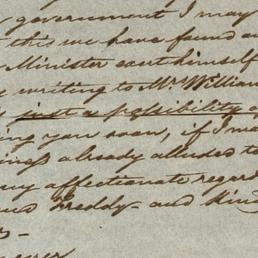 government I may
this we have found a
Minister exert himself
writing to Mr. William
just a possibility of
ing you soon, if I ma
iness already alluded to
my affectionate regard
Freddy - and kin